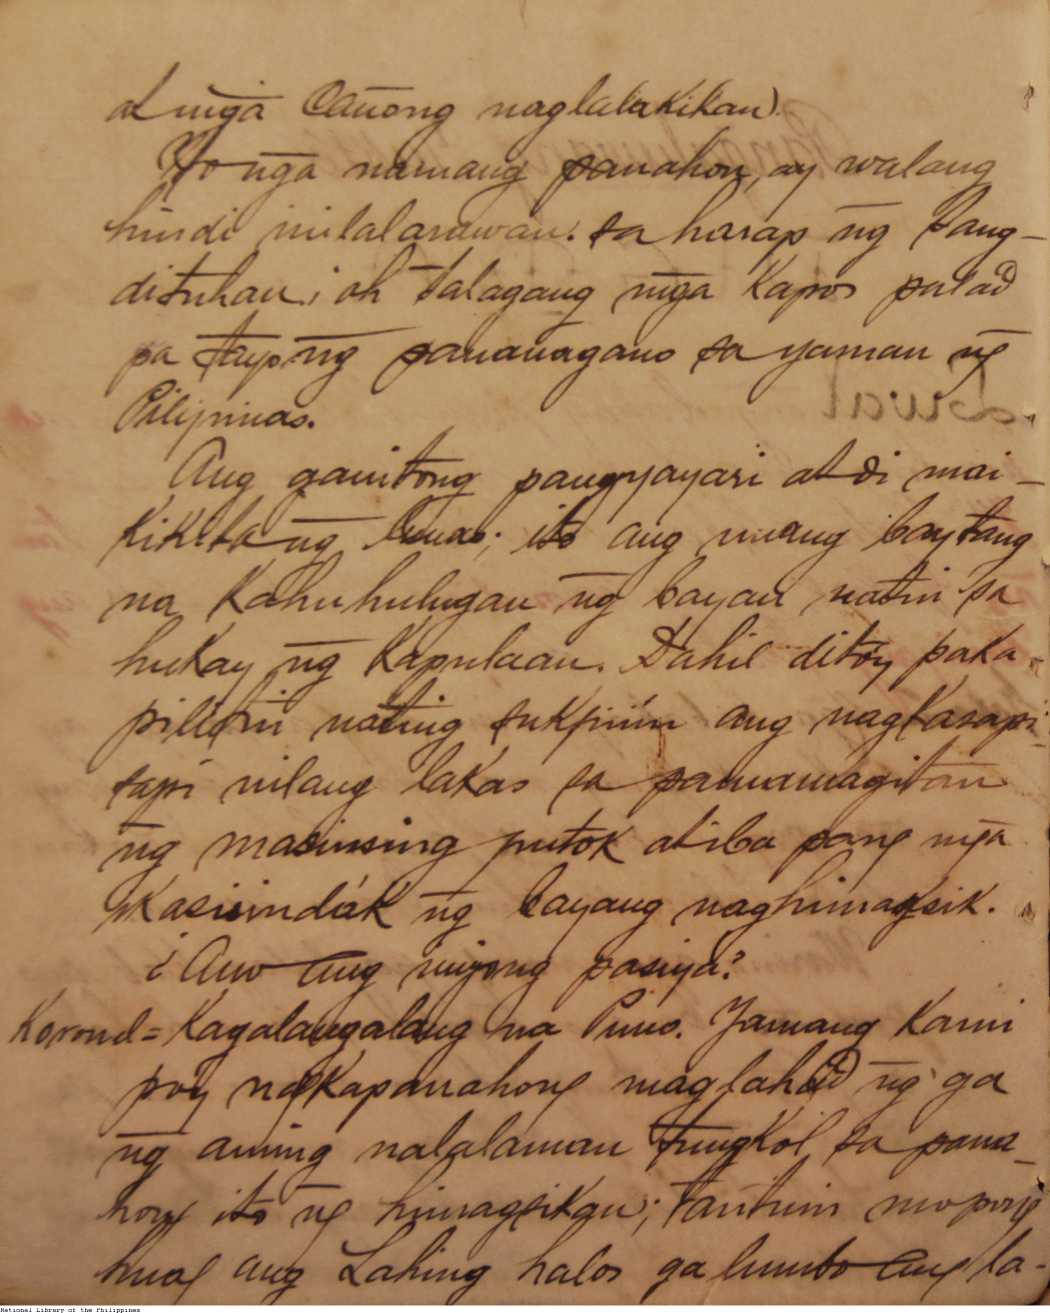 at mḡa Cauong naglalakikan).
Yto nḡa namang panahon, ay walang
hindi inilalarawan. sa harap nḡ Sang-
dituhan; oh talagang mḡa kapos palad
pa tayo nḡ pananagano sa yaman nḡ
Pilipinas.
Ang ganitong pangyayari at di mai-
kikita nḡ lunas; ito ang unang baytang
na kahuhulugan nḡ bayan natin sa
hukay nḡ kapulaan. Dahil dito'y paka
pilitin nating sukpiin ang nagkasapi-
sapi nilang lakas sa pamamagitan
nḡ masinsing putok at iba pang mḡa
kasiindák nḡ bayang naghimagsik.
¿Anu ang inyong pasiya?
Koronel = Kagalanggalang na Puno. Yamang kami
poy nagkapanahong maglahad nḡ ga
nḡ aming nalalaman tungkol sa pana-
hong ito nḡ himagsikan; tantuin mo pong
ang Lahing halos ga lumbo ang la-
National Library of the Philippines